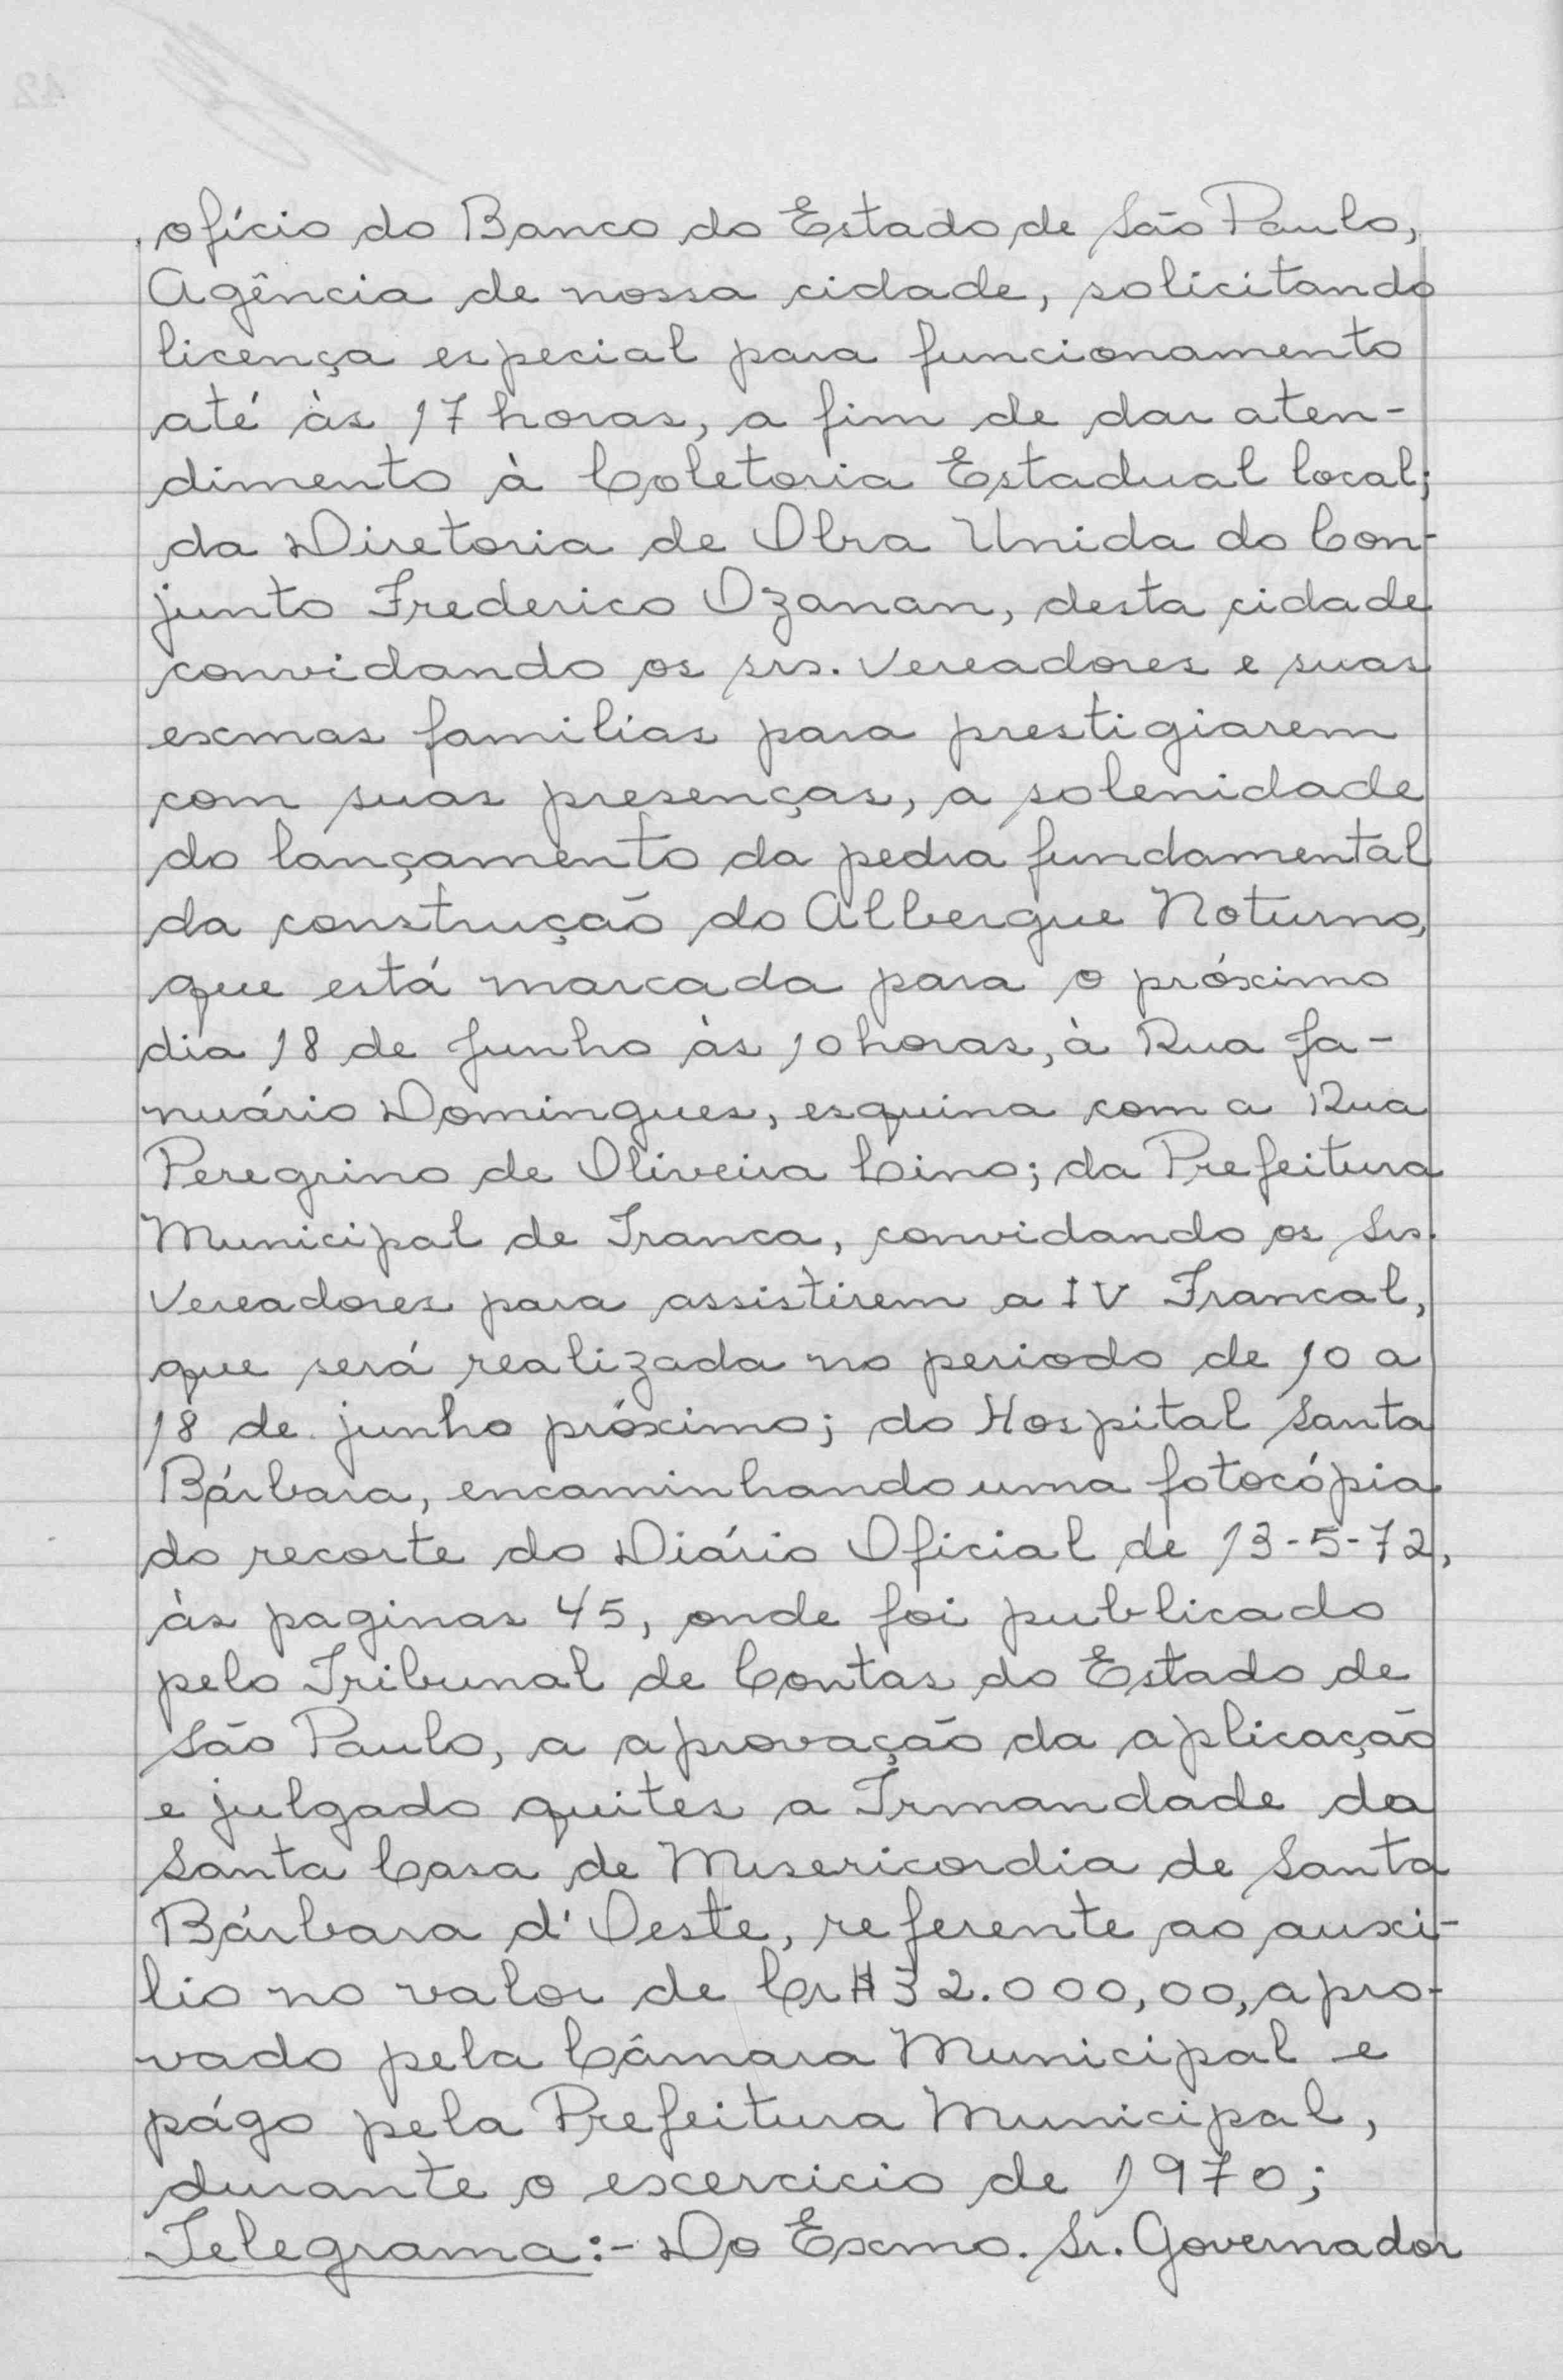 ofício do Banco do Estado de São Paulo,
Agência de nossa cidade, solicitando
licença especial para funcionamento
até às 17 horas, a fim de dar aten-
dimento à Coletoria Estadual local;
da Diretoria de Obra Unida do Con-
junto Frederico Ozanan, desta cidade
convidando os srs. Vereadores e suas
exmas familias para prestigiarem
com suas presenças, a solenidade
do lançamento da pedra fundamental
da construção do Albergue Noturno,
que está marcada para o próximo
dia 18 de Junho às 10 horas, à Rua Ja-
nuário Domingues, esquina com a Rua
Peregrino de Oliveira Lino; da Prefeitura
Municipal de Franca, convidando os Srs.
Vereadores para assistirem a IV Francal,
que será realizada no periodo de 10 a
18 de junho próximo; do Hospital Santa
Bárbara, encaminhando uma fotocópia
do recorte do Diário Oficial de 13-5-72,
às paginas 45, onde foi publicado
pelo Tribunal de Contas do Estado de
São Paulo, a aprovação da aplicação
e julgado quites a Irmandade da
Santa Casa de Misericordia de Santa
Bárbara d'Oeste, referente ao auxi-
lio no valor de Cr$32.000,00, apro-
vado pela Câmara Municipal e
págo pela Prefeitura Municipal,
durante o excercicio de 1970;
Telegrama:- Do Exmo. Sr. Governador